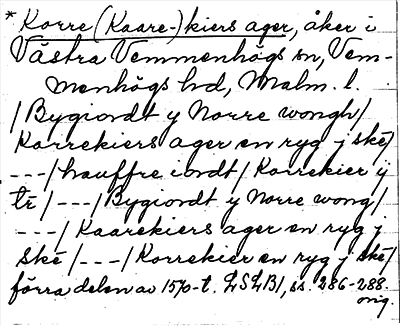 * Korre (Kaare-) kiers ager, åker i
Västra Vemmenhögs sn, Vem-
menhögs hd, Malm. l.
/ Bygiordt y Norre wongh /
Korrekiers ager en ryg j ske /
--- / hauffre iordt / Korrekier y
tr / --- / Bygiordt y Norre wong /
--- / Kaarekiers ager en ryg j
ske / --- / Korrekier en ryg j ske /
förra delen av 1570-t. LSLB1, ss. 286-288.
orig.